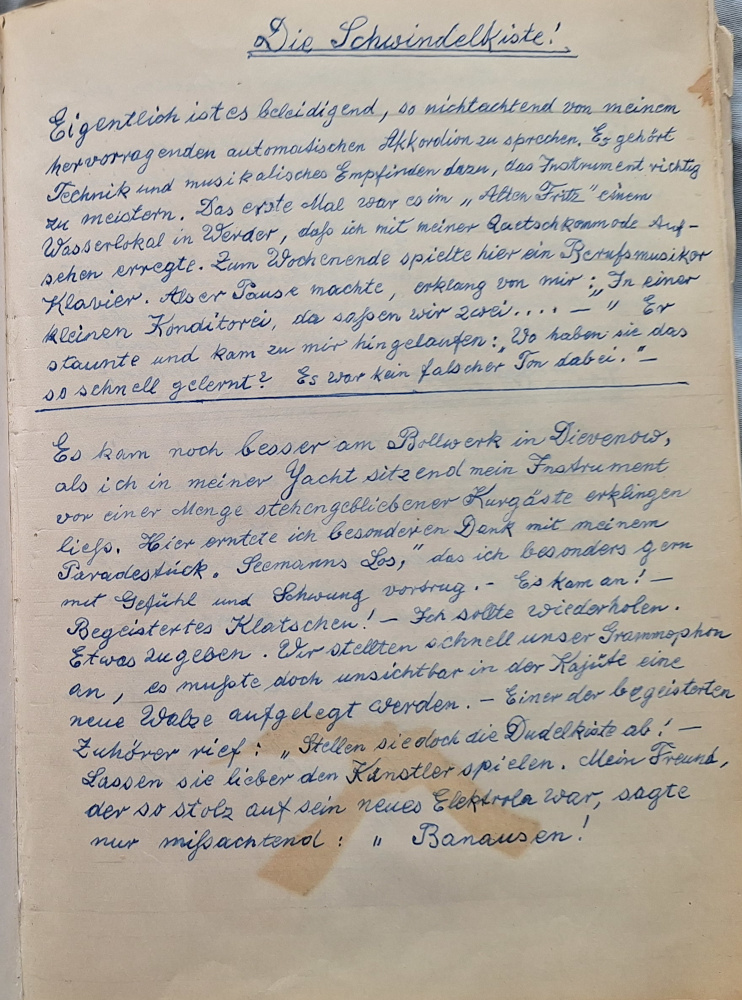 Die Schwindelkiste!
Eigentlich ist es beleidigend, so nichtachtend von meinem
hervorragenden automatischen Akkordion zu sprechen. Es gehört
Technik und musikalisches Empfinden dazu, das Instrument richtig
zu meistern. Das erste Mal war es im „Alten Fritz" einem
Wasserlokal in Werder, daß ich mit meiner Quetschkommode Auf-
sehen erregte. Zum Wochenende spielte hier ein Berufsmusikor
Klavier. Als er Pause machte, erklang von mir: „In einer
kleinen Konditorei, da saßen wir zwei.... — " Er
staunte und kam zu mir hingelaufen: „Wo haben sie das
so schnell gelernt? Es war kein falscher Ton dabei." —
Es kam noch besser am Bollwerk in Dievenow,
als ich in meiner Yacht sitzend mein Instrument
vor einer Menge stehengebliebener Kurgäste erklingen
ließ. Hier erntete ich besonderen Dank mit meinem
Paradestück „Seemanns Los," das ich besonders gern
mit Gefühl und Schwung vortrug. - Es kam an! —
Begeistertes Klatschen! — Ich sollte wiederholen.
Etwas zugeben. Wir stellten schnell unser Grammophon
an, es mußte doch unsichtbar in der Kajüte eine
neue Walze aufgelegt werden. — Einer der begeisterten
Zuhörer rief: „Stellen sie doch die Dudelkiste ab! —
Lassen sie lieber den Künstler spielen. Mein Freund,
der so stolz auf sein neues Elektrola war, sagte
nur mißachtend: „ Banausen!